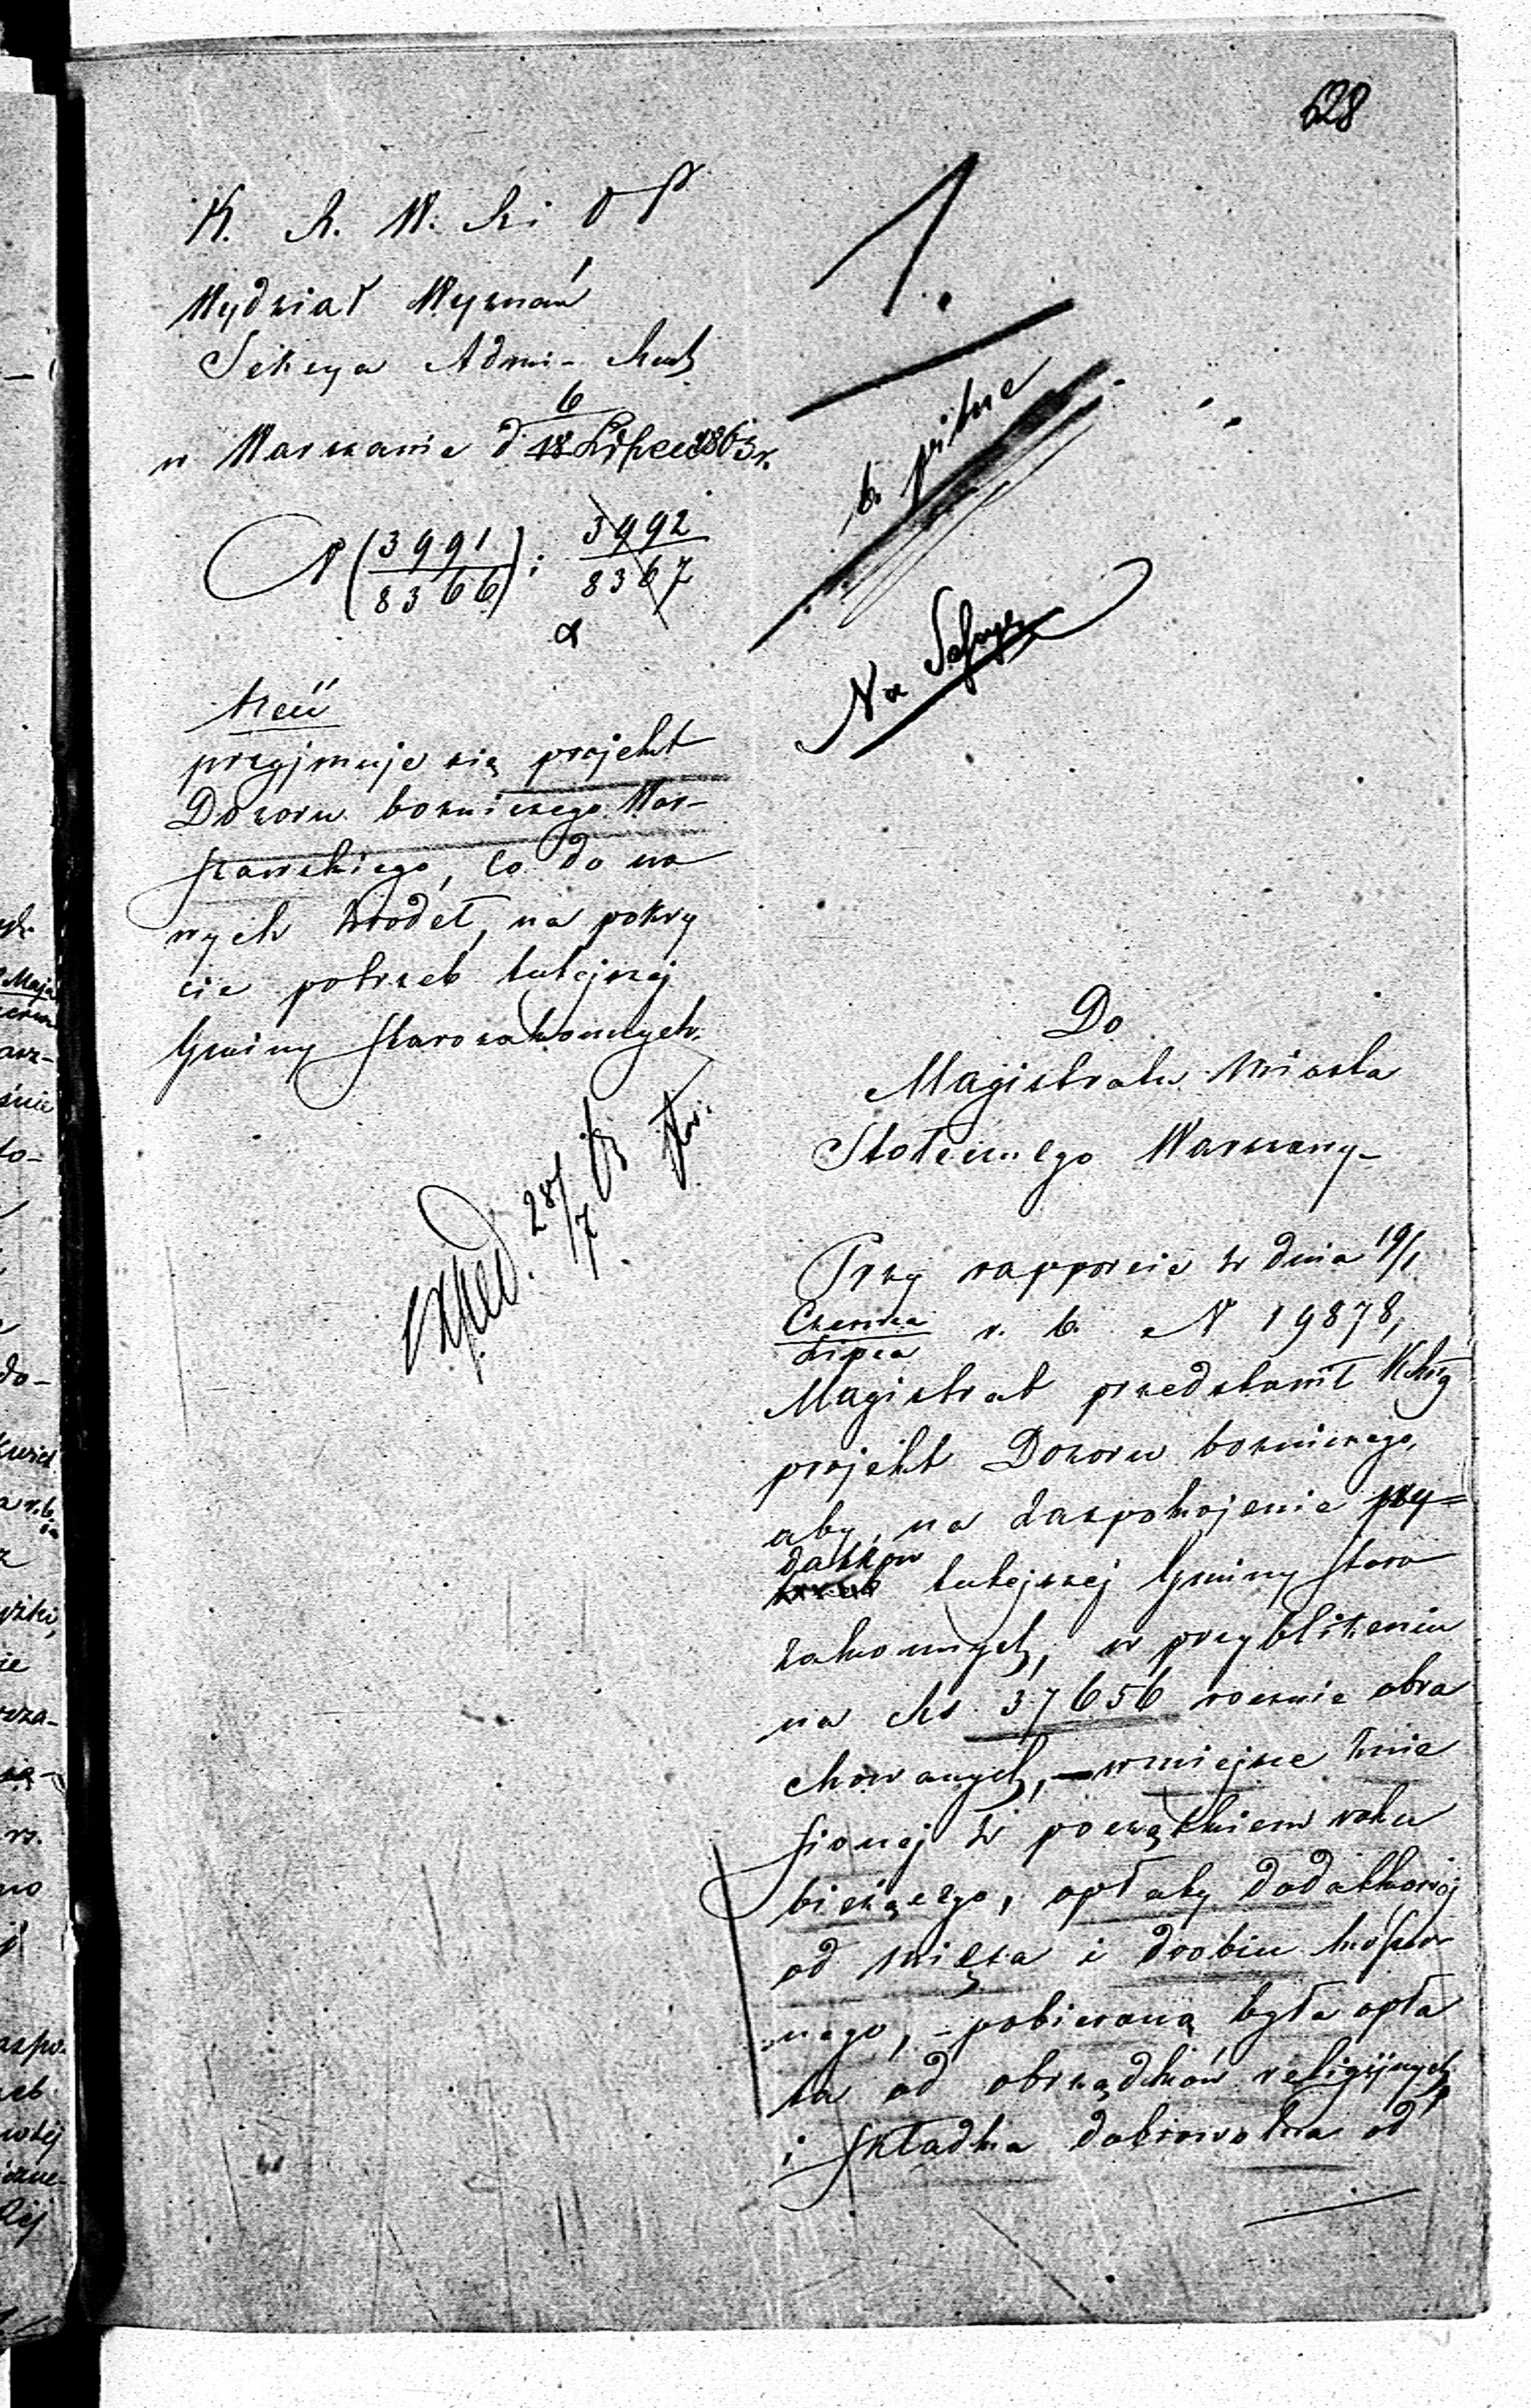 628
K. R. W. R i O P
Wydział Wyznań
Sekcya Admi- Rach
w Warszawie d. 6/18 Lipca 1863 r.
N (3991/8366); 3992/8367
1.
b. pilne
Treść
przyjmuje się projekt
Dozoru bożniczego War-
szawskiego, co do no
wych źrodeł, na pokry
cie potrzeb tutejszej
Gminy Starozakonnych.
exped. 28/7 63
Do
Magistratu Miasta
Stołecznego Warszawy-
Przy rapporcie z dnia 19/1
Czerwca/Lipca r. b. N 19878,
Magistrat przedstawił
projekt Dozoru bożniczego,
aby, na zaspokojenie wy=
datków tutejszej Gminy Staro
zakonnych, w przybliżeniu
na Rs. 37656 rocznie obra
chowanych, – w miejsce znie
sionej z początkiem roku
bieżącego, opłaty dodatkowej
od mięsa i drobiu koszer
nego, – pobieraną była opła
ta od obrządków religijnych,
i składka dobrowolna od